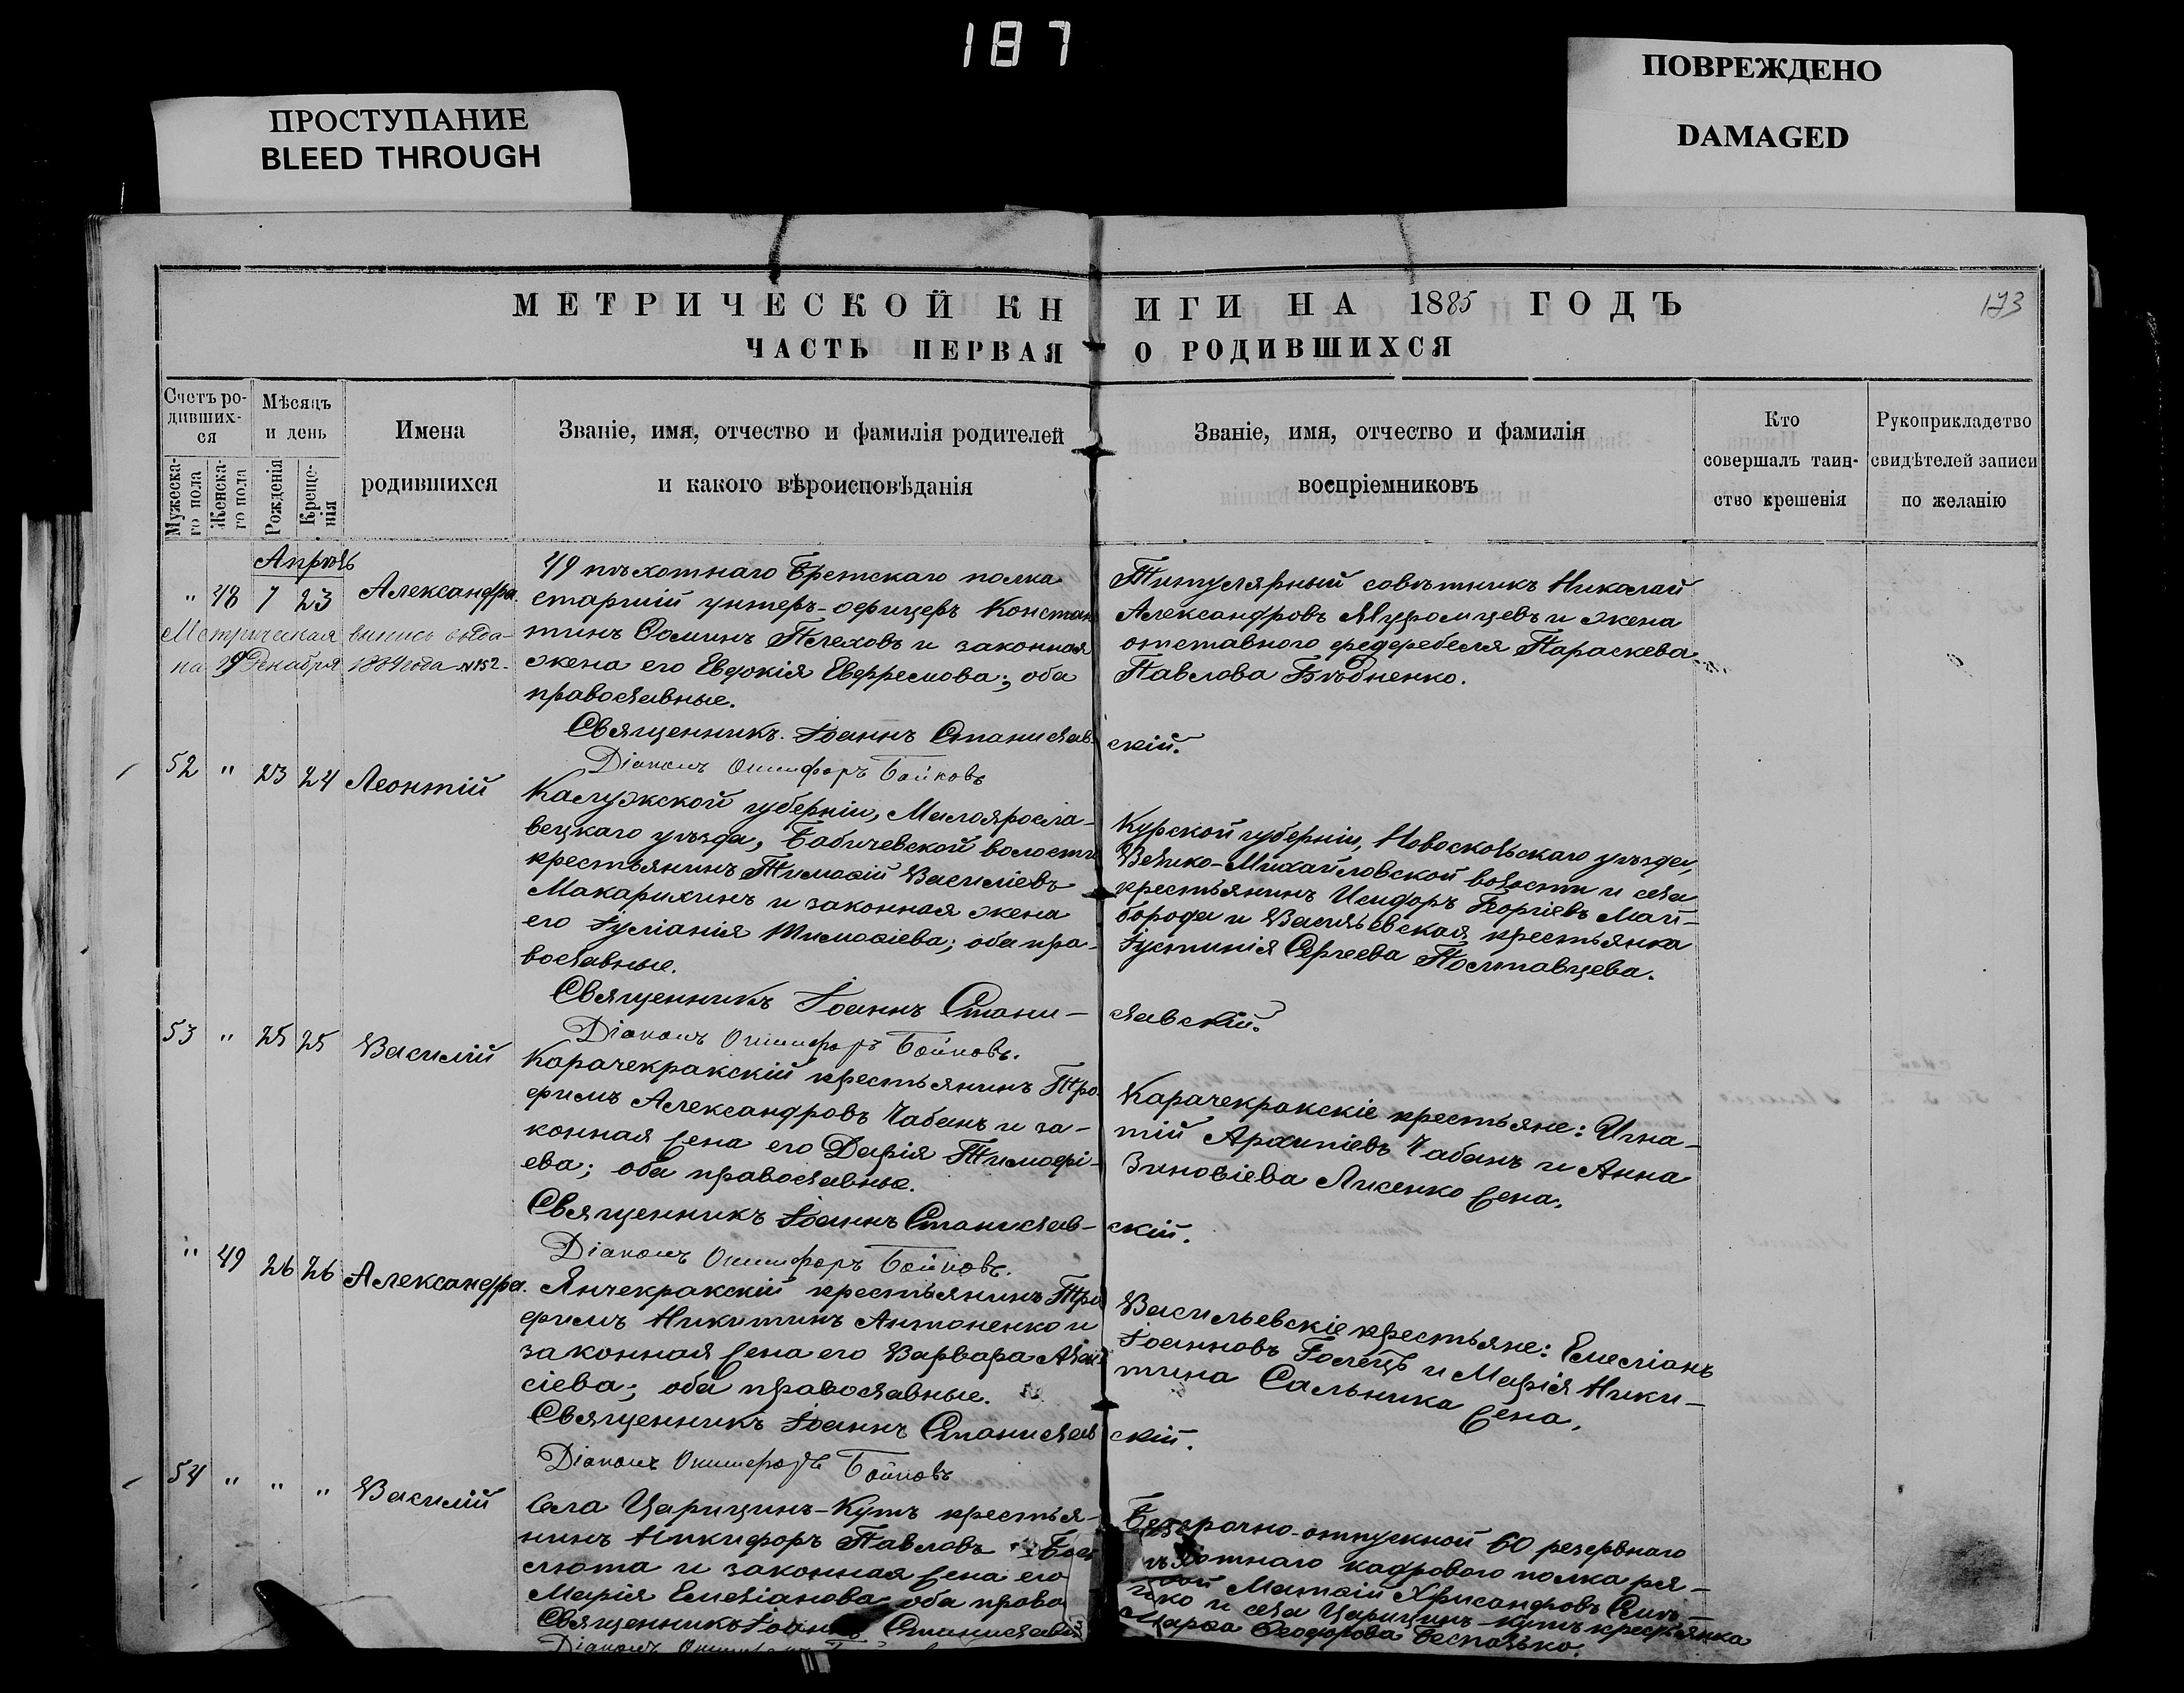 187
ПРОСТУПАНИЕ
BLEED THROUGH
ПОВРЕЖДЕНО
DAMAGED
МЕТРИЧЕСКОЙ КНИГИ НА 1885 ГОДЪ
173
ЧАСТЬ ПЕРВАЯ О РОДИВШИХСЯ
Счетъ ро-
дивших-
ся
Мужеска-
го пола
Женска-
го пола
Мѣсяцъ
и день
Рожденія
Креще-
нія
Имена
родившихся
Званіе, имя, отчество и фамилія родителей
и какого вѣроисповѣданія
Званіе, имя, отчество и фамилія
воспріемниковъ
Кто
совершалъ таин-
ство крещенія
Рукоприкладство
свидѣтелей записи
по желанію
Апрѣль
" 48 7 23 Александра.
Метрическая выпись выда-
на 19 Декабря года №152-
49 пѣхотнаго Брестскаго полка
старшій унтеръ-офицеръ Констан
тинъ Ѳоминъ Плеховъ и законная
жена его Евдокія Евфремова; оба
православные.
Титулярный совѣтникъ Николай
Александровъ Муромцевъ и жена
отставного фельдфебеля Параскева
Павлова Бѣдненко.
Священникъ Іоаннъ Станислав-
скій.
Діаконъ Онисифоръ Бойковъ
52 " 23 24 Леонтій
Калужской губерніи, Малояросла-
вецкаго уѣзда, Бабичевской волости
крестьянинъ Тимоѳій Василіевъ
Макарихинъ и законная жена
его Іуліанія Тимоѳіева; оба пра-
вославные.
Курской губерніи, Новоскольскаго уѣзда,
Велико-Михайловской волости и села
крестьянинъ Исидоръ Георгіевъ Май-
борода и Васильевская крестьянка
Іустинія Сергеева Полтавцева.
Священникъ Іоаннъ Стани-
славскій.
Діаконъ Онисифоръ Бойковъ.
53 " 25 25 Василій
Карачекракскій крестьянинъ Тро-
фимъ Александровъ Чабанъ и за-
конная жена его Дарія Тимофі-
ева; оба православные.
Карачекракскіе крестьяне: Игна-
тій Архипіевъ Чабанъ и Анна
Зиновіева Лисенко жена.
Священникъ Іоаннъ Станислав-
скій.
Діаконъ Онисифоръ Бойковъ.
" 49 26 26 Александра.
Янчекракскій крестьянинъ Тро
фимъ Никитинъ Антоненко и
законная жена его Варвара
сіева; оба православные.
Васильевскіе крестьяне: Емеліанъ
Іоанновъ Голецъ и Марія Ники-
тина Сальника жена.
Священникъ Іоаннъ Станислав
скій.
Діаконъ Онисифоръ Бойковъ
54 " " " Василій
Села Царицинъ-Кутъ крестья-
нинъ Никифоръ Павловъ
и законная жена его
Марія Емеліанова оба право
Безсрочно-отпускной 60 резервнаго
пѣхотнаго кадроваго полка ря-
Матѳій Хрисанфовъ
и села Царицинъ-Кутъ крестьянка
Марѳа Ѳеодорова Беспалько.
Священникъ Іоаннъ Станислав
Діаконъ